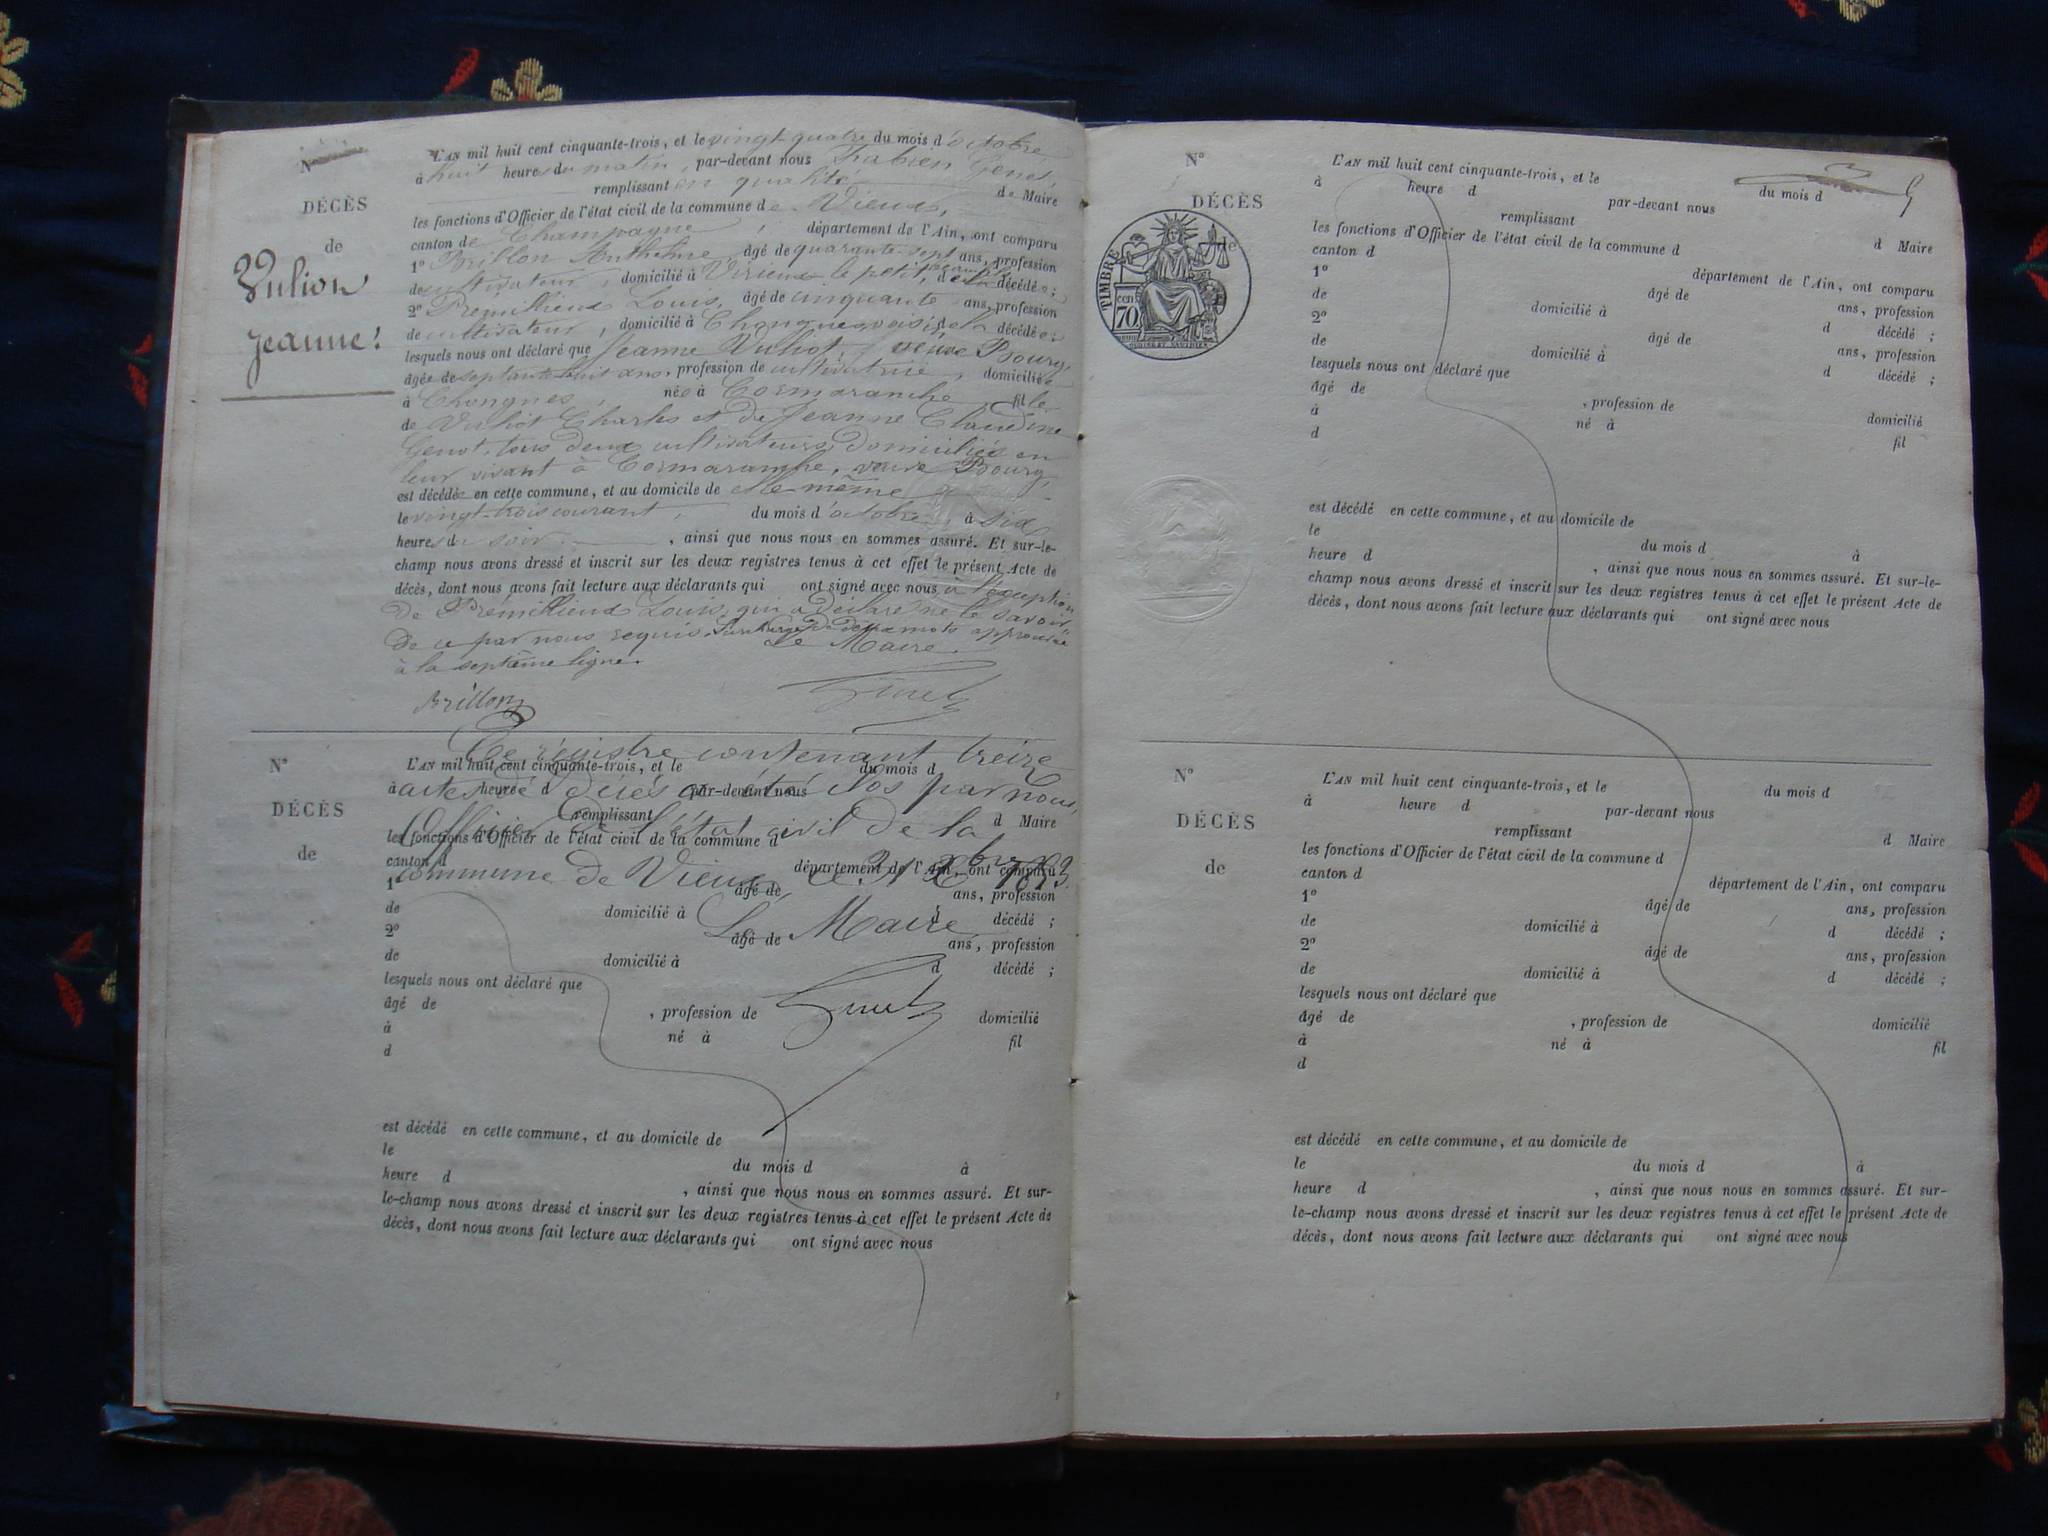 N°
DÉCÈS
de
Vulion
Jeanne!
L'AN mil huit cent cinquante-trois, et le vingt-quatre du mois d'octobre,
à huit heures du matin, par-devant nous
remplissant en qualité de Maire
les fonctions d'Officier de l'état civil de la commune de Vieux,
canton de Champagne, département de l'Ain, ont comparu
1° Brillon Anthelme âgé de quarante-sept ans, profession
de cultivateur, domicilié à Virieux-le petit, d décédé ;
2° Prémillieux Louis, âgé de cinquante ans, profession
de cultivateur, domicilié à décédé
lesquels nous ont déclaré que Jeanne Vuliot, veuve Bourg,
âgée de septante-huit ans, profession de cultivatrice, domiciliée
à Chongnes, née à Cormaranche, fille
de Vuliot Charles et de Jeanne Claudine
Genot, tous deux cultivateurs domiciliés en
leur vivant à Cormaranche, veuve Bourg,
est décédée en cette commune, et au domicile de elle-même
le vingt-trois courant, du mois d'octobre, à six
heures du soir, ainsi que nous nous en sommes assuré. Et sur-le-
champ nous avons dressé et inscrit sur les deux registres tenus à cet effet le présent Acte de
décès, dont nous avons fait lecture aux déclarants qui ont signé avec nous à l'exception
de Prémillieux Louis, qui a déclaré ne le savoir,
de ce par nous requis. Surcharge de deux mots approuvée
à la septième ligne. Le Maire.
Brillon
N°
DÉCÈS
de
Ce registre contenant treize
L'AN mil huit cent cinquante-trois, et le du mois d
actes de décès a été clos par nous,
à heure d par-devant nous
remplissant d Maire
Officier de l'état civil de la
les fonctions d'Officier de l'état civil de la commune d
canton d département de l'Ain, ont comparu
commune de Vieux, le 31 Xbre 1853.
1° âgé de ans, profession
de domicilié à d décédé ;
Le Maire
2° âgé de ans, profession
de domicilié à d décédé ;
lesquels nous ont déclaré que
âgé de , profession de domicilié
à né à fil
d
est décédé en cette commune, et au domicile de
le du mois d à
heure d , ainsi que nous nous en sommes assuré. Et sur-
le-champ nous avons dressé et inscrit sur les deux registres tenus à cet effet le présent Acte de
décès, dont nous avons fait lecture aux déclarants qui ont signé avec nous
N°
DÉCÈS
de
TIMBRE
70 cen
L'AN mil huit cent cinquante-trois, et le du mois d
à heure d par-devant nous
remplissant d Maire
les fonctions d'Officier de l'état civil de la commune d
canton d département de l'Ain, ont comparu
1° âgé de ans, profession
de domicilié à d décédé ;
2° âgé de ans, profession
de domicilié à d décédé ;
lesquels nous ont déclaré que
âgé de , profession de domicilié
à né à fil
d
est décédé en cette commune, et au domicile de
le du mois d à
heure d , ainsi que nous nous en sommes assuré. Et sur-le-
champ nous avons dressé et inscrit sur les deux registres tenus à cet effet le présent Acte de
décès, dont nous avons fait lecture aux déclarants qui ont signé avec nous
N°
DÉCÈS
de
L'AN mil huit cent cinquante-trois, et le du mois d
à heure d par-devant nous
remplissant d Maire
les fonctions d'Officier de l'état civil de la commune d
canton d département de l'Ain, ont comparu
1° âgé de ans, profession
de domicilié à d décédé ;
2° âgé de ans, profession
de domicilié à d décédé ;
lesquels nous ont déclaré que
âgé de , profession de domicilié
à né à fil
d
est décédé en cette commune, et au domicile de
le du mois d à
heure d , ainsi que nous nous en sommes assuré. Et sur-
le-champ nous avons dressé et inscrit sur les deux registres tenus à cet effet le présent Acte de
décès, dont nous avons fait lecture aux déclarants qui ont signé avec nous